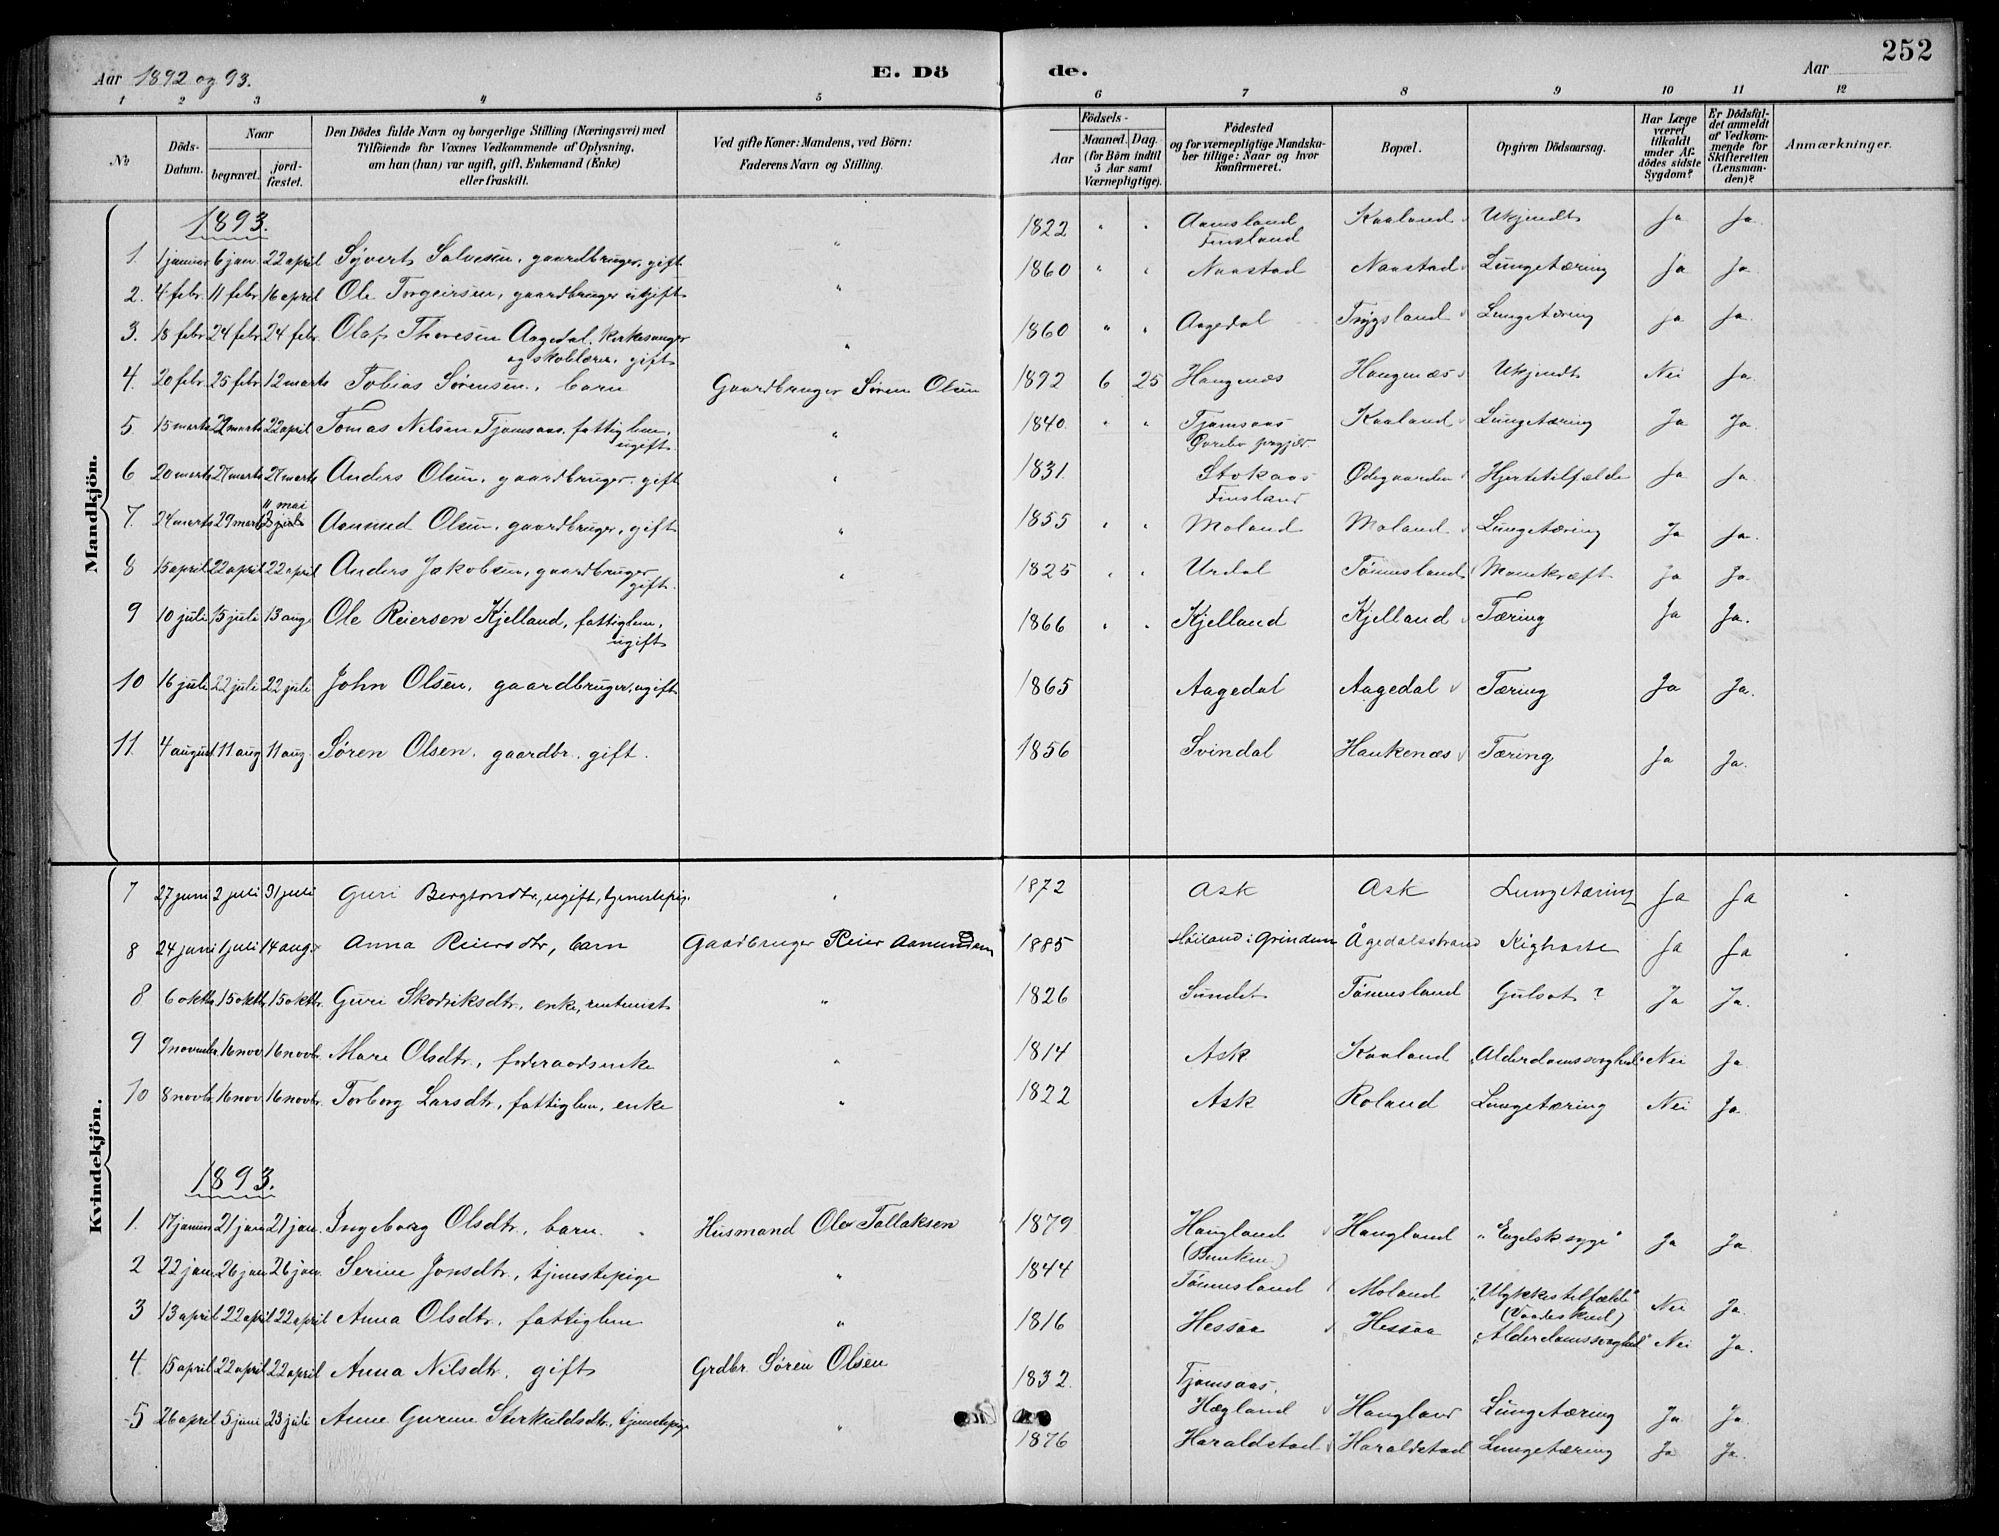 Aar 1892 og 93.
E. Dö
de.
Aar
252
1 2 3 4 5 6 7 8 9 10 11 12
No
Döds-Datum.
Naar
begravet.
jord-fæstet.
Den Dödes fulde Navn og borgerlige Stilling (Næringsvei) med
Tilföiende for Voxnes Vedkommende af Oplysning,
om han (hun) var ugift, gift, Enkemand (Enke)
eller fraskilt.
Ved gifte Koner: Mandens, ved Börn:
Faderens Navn og Stilling.
Födsels-
Aar
Maaned. Dag.
(for Börn indtil
5 Aar samt
Værnepligtige).
Födested
og for værnepligtige Mandska-
ber tillige: Naar og hvor
konfirmeret.
Bopæl.
Opgiven Dödsaarsag.
Har Læge
været
tilkaldt
under Af-
dödes sidste
Sygdom?
Er Dödsfal-
det anmeldt
af Vedkom-
mende for
Skifteretten
(Lensman-
den)?
Anmærkninger.
Mandkjön.
1893.
1. 1 januar 6 jan. 22 april Sjvert Salvesen, gaardbruger, gift " 1822 " " Aamsland Finsland Kaaland Ukjendt Ja Ja.
2. 4 febr. 11 febr. 16 april Ole Torgeirsen, gaardbruger ugift " 1860 " " Naastad Naastad Lungetæring Ja Ja
3. 18 febr. 24 febr. 24 febr. Olaf Thoresen Aagedal, kirkesanger og skolelærer, gift " 1860 " " Aagedal Trygsland Lungetæring Ja Ja.
4. 20 febr. 25 febr. 12 marts Tobias Sørensen, barn Gaardbruger Søren Olsen 1892 6 25 Haugenæs Haugenæs Ukjendt Nei Ja.
5. 15 marts 22 marts 22 april Tomas Nilsen Tjomsaas, fattiglem, ugift " 1840. " " Tjomsaas Øvrebo prgjld. Kaaland Lungetæring Ja Ja.
6 20 marts 27 marts 27 marts Anders Olsen, gaardbruger, gift " 1831. Stokaas Finsland Ødegaarden Hjertetilfælde Ja Ja.
7. 24 marts 29 marts 11 mai Aamund Olsen, gaardbruger, gift " 1855 " " Moland Moland Lungetæring Ja Ja.
8 15 april 22 april 22 april Anders Jakobsen, gaardbruger gift. " 1825 " " Urdal Tønnesland Mavekræft Ja Ja.
9 10 juli 15 juli 13 aug. Ole Reiersen Kjelland, fattiglem, ugift 1866 " " Kjelland Kjelland Tæring Ja Ja.
10 16 juli 22 juli 22 juli John Olsen, gaardbruger, ugift 1865 Aagedal Aagedal Tæring Ja Ja.
11. 4 august 11 aug. 11 aug. Søren Olsen, gaardbr. gift. 1856 Svindal Haukenæs Tæring Ja Ja.
Kvindekjön.
7 27 juni 2 juli 31 juli Guri Bergtorsdtr., ugift, tjenestepig. " 1872 Ask Ask Lungetæring Ja Ja
8 24 juni 1 juli 14 aug. Anna Reiersdtr, barn Gaardbruger Reier Aamundsen 1885 Høiland i Grindum Ågedalsstrand Kighoste Ja Ja
8 6 oktb. 15 oktb. 15 oktbr. Guri Skodriksdtr., enke, rentenist " 1826 Sundet Tønnesland Gulsot ? Ja Ja.
9 9 november 16 nov. 16 novbr. Mare Olsdtr., foderaadsenke " 1814 Ask Kaaland "Alderdomssvaghed" Nei Ja
10 8 novbr. 16 nov. 16 novbr. Torborg Larsdtr., fattiglem, enke " 1822 Ask Roland Lungetæring Nei Ja.
1893.
1. 17 januar 21 jan. 21 jan. Ingeborg Olsdtr., barn. Husmand Ole Tallaksen 1879 Haugland (Brunken) Haugland "Engelsk syge" Ja Ja.
2 22 jan. 26 jan. 26 jan. Serine Jonsdtr., tjenestepige " 1844 Tønnesland Moland "Ulykkestilfælde" (Vaadeskud) Nei Ja.
3 13 april 22 april 22 april Anna Olsdtr., fattiglem " 1816 Hessaa Hessaa "Alderdomssvaghed" Nei Ja.
4 15 april 22 april 22 april Anna Nilsdtr., gift Grdbr. Søren Olsen 1832. Tjomsaas. Hægland Haugland Lungetæring Ja Ja.
5 26 april 5 juni 23 juli Anne Gurine Sterkuldsdtr., tjenestepige " 1876 Haraldstad Haraldstad Lungetæring Ja Ja.